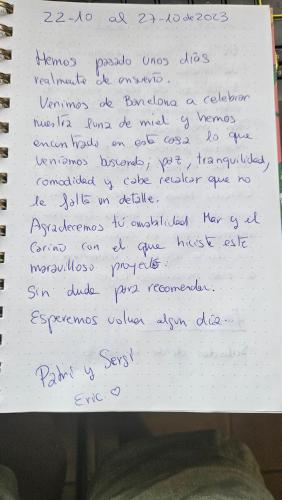 22-10 al 27-10 de 2023
Hemos pasado unos días
realmente de ensueño.
Venimos de Barcelona a celebrar
nuestra luna de miel y hemos
encontrado en esta casa lo que
veníamos buscando; paz, tranquilidad,
comodidad y cabe recalcar que no
le falta un detalle.
Agradecemos tú amabilidad Mar y el
cariño con el que hiciste este
maravilloso proyecto.
Sin duda para recomendar.
Esperemos volver algún día...
Patri y Sergi
Eric ♡